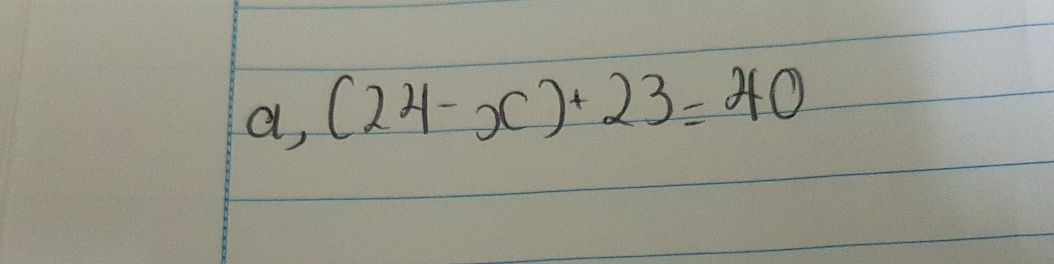 a, (24 - x) + 23 = 40